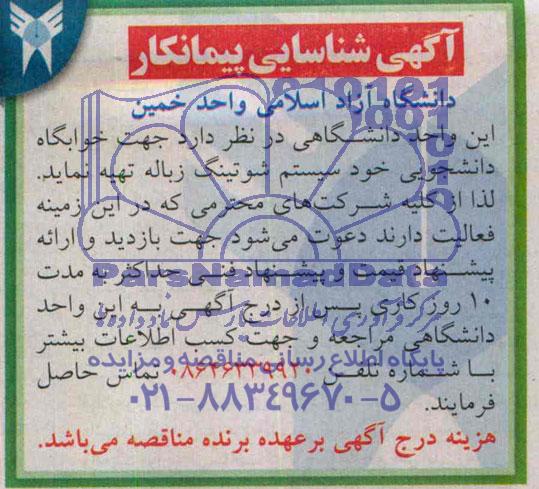 آگهی شناسایی پیمانکار
دانشگاه آزاد اسلامی واحد خمین
این واحد دانشگاهی در نظر دارد جهت خوابگاه
دانشجویی خود سیستم شوتینگ زباله تهیه نماید.
لذا از کلیه شرکت‌های محترمی که در این زمینه
فعالیت دارند دعوت می‌شود جهت بازدید و ارائه
پیشنهاد قیمت و پیشنهاد فنی حداکثر به مدت
ParsNamadData
۱۰ روز کاری پس از درج آگهی به این واحد
دانشگاهی مراجعه و جهت کسب اطلاعات بیشتر
پایگاه اطلاع رسانی مناقصه و مزایده
با شماره تلفن تماس حاصل
۰۲۱-۸۸۳۴۹۶۷۰-۵
فرمایند.
هزینه درج آگهی بر عهده برنده مناقصه می‌باشد.